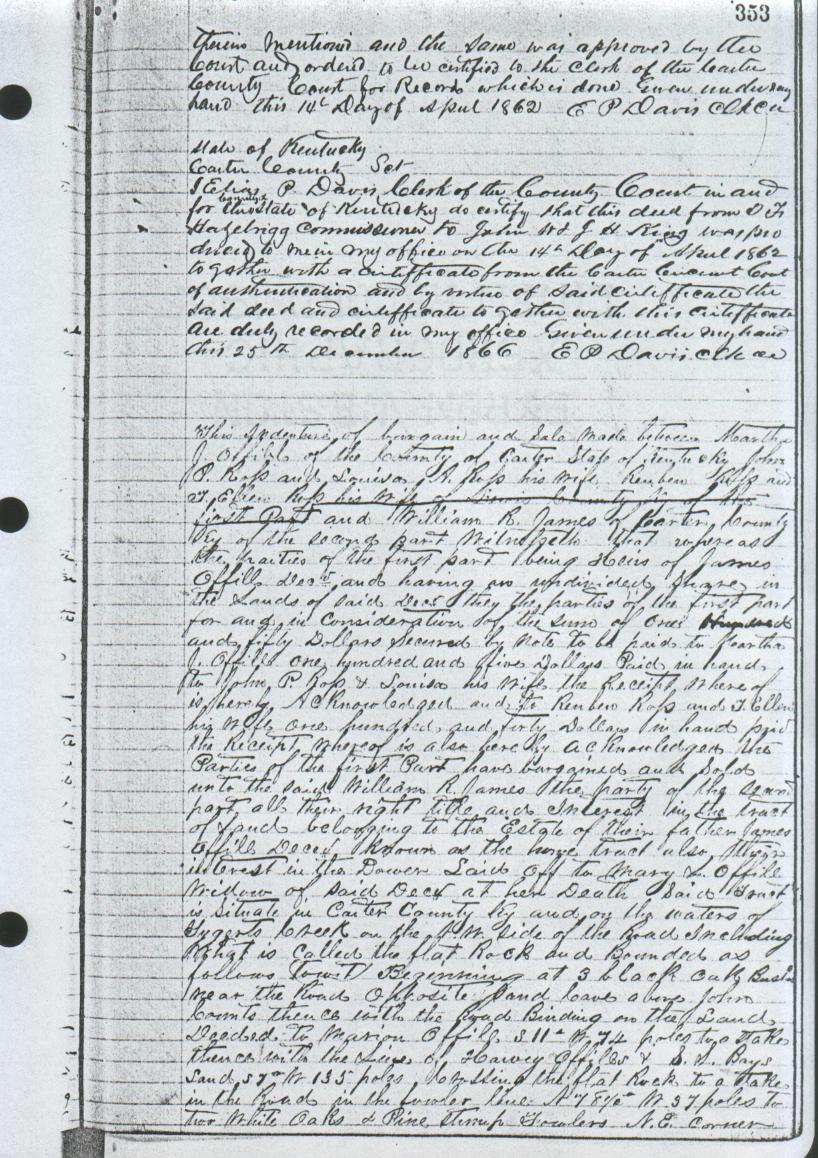 353
therein mentioned and the same was approved by the
Court and ordered to be certified to the Clerk of the Carter
County Court for Record which is done Given under my
hand this 14th Day of April 1862 E P Davis Clk
State of Kentucky
Carter County Sct
I Elias P. Davis Clerk of the County Court in and
for the County & State of Kentucky do certify that this deed from D F
Hazelrigg Commissioner to John W & J H King was pro
duced to me in my office on the 14th Day of April 1862
to gether with a certifficate from the Carter Circuit Court
of authentication and by virtue of said certifficate the
said deed and certifficate to gether with this certifficate
are duly recorded in my office Given under my hand
this 25th December 1866 E P Davis Clk
This Indenture of bargain and Sale made between Martha
J. Offill of the County of Carter State of Kentucky John
P. Ross and Louisa A. Ross his wife Reuben Ross and
T. Ellen Ross his Wife of Lewis County Ky of the
first Part and William R. James of Carter County
Ky of the second part Witnesseth that whereas
the parties of the first part being Heirs of James
Offill Decd and having an undivided Share in
the Lands of said Decd they the parties of the first part
for and in Consideration of the sum of one Hundred
and fifty Dollars Secured by note to be paid to Martha
J. Offill one hundred and five Dollars Paid in hand
to John P. Ross & Louisa his Wife the Receipt Whereof
is hereby Acknowledged and to Reuben Ross and T. Ellen
his Wife one hundred and forty Dollars in hand paid
the Receipt whereof is also hereby acknowledged the
Parties of the first Part have bargained and Sold
unto the said William R. James the party of the second
part all their right title and Interest in the tract
of Land belonging to the Estate of their father James
Offill Deced known as the home tract also their
interest in the Dower Laid off to Mary L. Offill
Widow of said Decd at her Death Said Tract
is Situate in Carter County Ky and on the waters of
Tygerts Creek on the N.W. side of the Road Including
What is called the flat Rock and Bounded as
follows Towit Beginning at 3 black oak
near the Road Opposite Sand Cave above John
Counts thence with the Road Binding on the Land
Deeded to Marion Offill S 11° W 74 poles to a stake
thence with the Line of Harvey Offills & Bays
Land S 7° W 135 poles Crossing the flat Rock to a stake
in the Road in the fowler line N 78½° W 37 poles to
two White Oaks & Pine stump Fowlers N.E. Corner